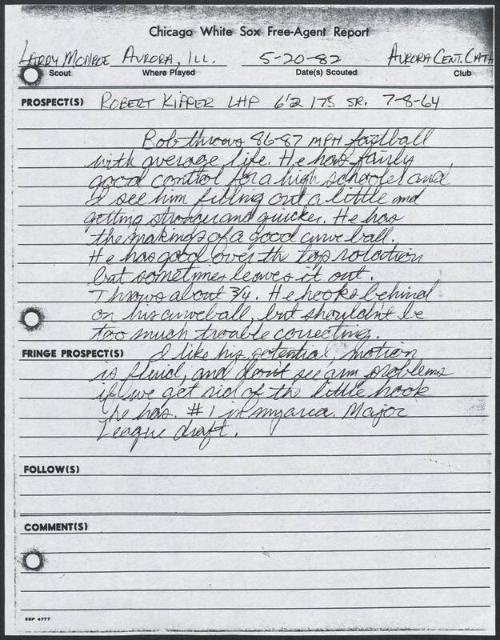 Chicago White Sox Free-Agent Report
Larry Monroe Aurora, Ill. 5-20-82 Aurora Cent. Cath
Scout Where Played Date(s) Scouted Club
PROSPECT(S) Robert Kipper LHP 6'2 175 SR. 7-8-64
Bob throws 86-87 MPH fastball
with average life. He has fairly
good control for a high schooler and
I see him filling out a little and
getting stronger and quicker. He has
the makings of a good curve ball.
He has good over the top rotation
but sometimes leaves it out.
Throws about 3/4. He hooks behind
on his curveball, but shouldn't be
too much trouble correcting.
FRINGE PROSPECT(S) I like his potential, motion
is fluid, and don't see arm problems
if we get rid of the little hook
he has. #1 in my area. Major
League draft.
FOLLOW(S)
COMMENT(S)